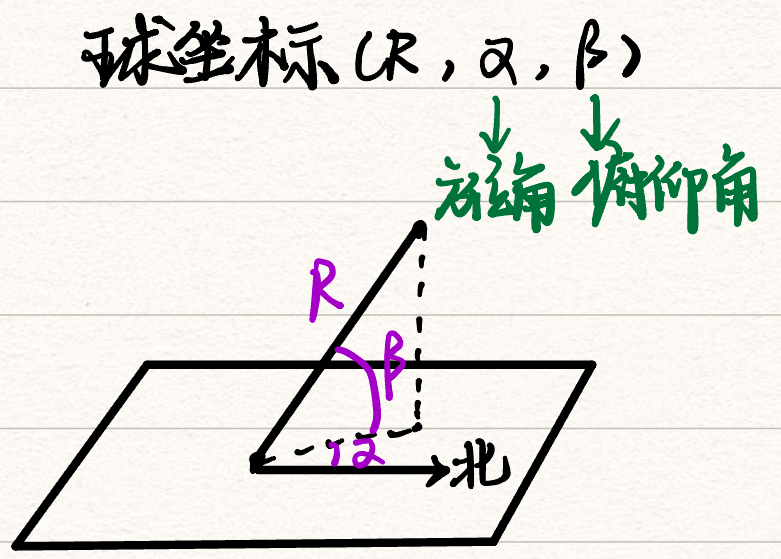 球坐标(R,α,β)
方位角 俯仰角
R
β
α
北